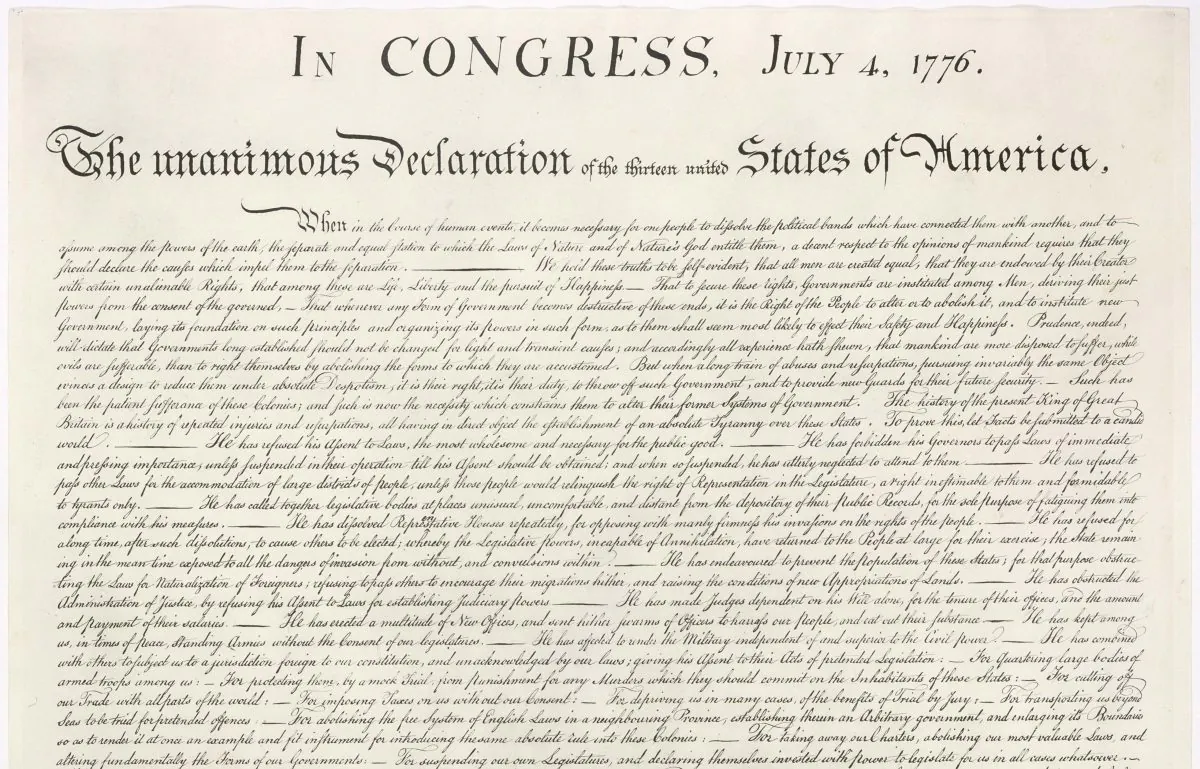 In CONGRESS, July 4, 1776.
The unanimous Declaration of the thirteen united States of America,
When in the Course of human events, it becomes necessary for one people to dissolve the political bands which have connected them with another, and to
assume among the powers of the earth, the separate and equal station to which the Laws of Nature and of Nature's God entitle them, a decent respect to the opinions of mankind requires that they
should declare the causes which impel them to the separation. ——— We hold these truths to be self-evident, that all men are created equal, that they are endowed by their Creator
with certain unalienable Rights, that among these are Life, Liberty and the pursuit of Happiness. — That to secure these rights, Governments are instituted among Men, deriving their just
powers from the consent of the governed, — That whenever any Form of Government becomes destructive of these ends, it is the Right of the People to alter or to abolish it, and to institute new
Government, laying its foundation on such principles and organizing its powers in such form, as to them shall seem most likely to effect their Safety and Happiness. Prudence, indeed,
will dictate that Governments long established should not be changed for light and transient causes; and accordingly all experience hath shewn, that mankind are more disposed to suffer, while
evils are sufferable, than to right themselves by abolishing the forms to which they are accustomed. But when a long train of abuses and usurpations, pursuing invariably the same Object
evinces a design to reduce them under absolute Despotism, it is their right, it is their duty, to throw off such Government, and to provide new Guards for their future security. — Such has
been the patient sufferance of these Colonies; and such is now the necessity which constrains them to alter their former Systems of Government. The history of the present King of Great
Britain is a history of repeated injuries and usurpations, all having in direct object the establishment of an absolute Tyranny over these States. To prove this, let Facts be submitted to a candid
world. ——— He has refused his Assent to Laws, the most wholesome and necessary for the public good. ——— He has forbidden his Governors to pass Laws of immediate
and pressing importance, unless suspended in their operation till his Assent should be obtained; and when so suspended, he has utterly neglected to attend to them. ——— He has refused to
pass other Laws for the accommodation of large districts of people, unless those people would relinquish the right of Representation in the Legislature, a right inestimable to them and formidable
to tyrants only. ——— He has called together legislative bodies at places unusual, uncomfortable, and distant from the depository of their Public Records, for the sole purpose of fatiguing them into
compliance with his measures. ——— He has dissolved Representative Houses repeatedly, for opposing with manly firmness his invasions on the rights of the people. ——— He has refused for
a long time, after such dissolutions, to cause others to be elected; whereby the Legislative powers, incapable of Annihilation, have returned to the People at large for their exercise; the State remain-
ing in the mean time exposed to all the dangers of invasion from without, and convulsions within. ——— He has endeavoured to prevent the population of these States; for that purpose obstruc-
ting the Laws for Naturalization of Foreigners; refusing to pass others to encourage their migrations hither, and raising the conditions of new Appropriations of Lands. ——— He has obstructed the
Administration of Justice, by refusing his Assent to Laws for establishing Judiciary powers ——— He has made Judges dependent on his Will alone, for the tenure of their offices, and the amount
and payment of their salaries. ——— He has erected a multitude of New Offices, and sent hither swarms of Officers to harrass our people, and eat out their substance. ——— He has kept among
us, in times of peace, Standing Armies without the Consent of our legislatures. ——— He has affected to render the Military independent of and superior to the Civil power. ——— He has combined
with others to subject us to a jurisdiction foreign to our constitution, and unacknowledged by our laws; giving his Assent to their Acts of pretended Legislation: — For Quartering large bodies of
armed troops among us: — For protecting them, by a mock Trial, from punishment for any Murders which they should commit on the Inhabitants of these States: — For cutting off
our Trade with all parts of the world: — For imposing Taxes on us without our Consent: — For depriving us in many cases, of the benefits of Trial by Jury: — For transporting us beyond
Seas to be tried for pretended offences: — For abolishing the free System of English Laws in a neighbouring Province, establishing therein an Arbitrary government, and enlarging its Boundaries
so as to render it at once an example and fit instrument for introducing the same absolute rule into these Colonies: — For taking away our Charters, abolishing our most valuable Laws, and
altering fundamentally the Forms of our Governments: — For suspending our own Legislatures, and declaring themselves invested with power to legislate for us in all cases whatsoever. —